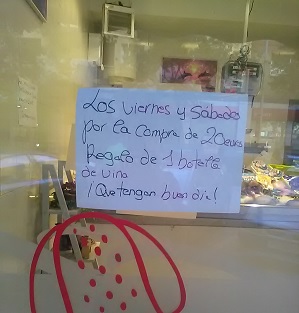 Los viernes y sábados
por la compra de 20euros
Regalo de 1 botella
de vino
¡Que tengan buen día!